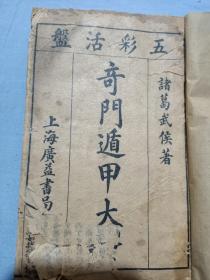 五彩活盤
諸葛武侯著
奇門遁甲大
上海廣益書局